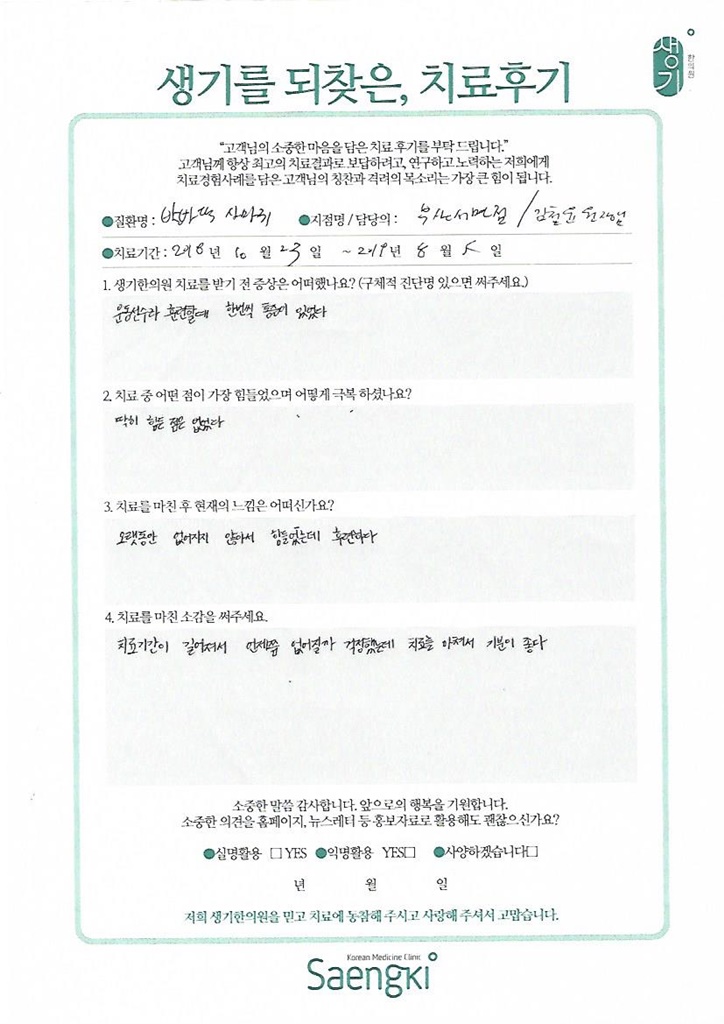 생기
한의원
생기를 되찾은, 치료후기
"고객님의 소중한 마음을 담은 치료 후기를 부탁 드립니다."
고객님께 항상 최고의 치료결과로 보답하려고, 연구하고 노력하는 저희에게
치료경험사례를 담은 고객님의 칭찬과 격려의 목소리는 가장 큰 힘이 됩니다.
●질환명 : 발바닥 사마귀 ●지점명 / 담당의 : 부산서면점 / 김철윤 원장님
●치료기간 : 2018 년 10 월 23 일 ~ 2019 년 8 월 5 일
1. 생기한의원 치료를 받기 전 증상은 어떠했나요? (구체적 진단명 있으면 써주세요.)
운동선수라 훈련할때 한번씩 통증이 있었다
2. 치료 중 어떤 점이 가장 힘들었으며 어떻게 극복 하셨나요?
딱히 힘든 점은 없었다
3. 치료를 마친 후 현재의 느낌은 어떠신가요?
오랫동안 없어지지 않아서 힘들었는데 후련하다
4. 치료를 마친 소감을 써주세요.
치료기간이 길어져서 언제쯤 없어질까 걱정했는데 치료를 마쳐서 기분이 좋다
소중한 말씀 감사합니다. 앞으로의 행복을 기원합니다.
소중한 의견을 홈페이지, 뉴스레터 등 홍보자료로 활용해도 괜찮으신가요?
●실명활용 □ YES ●익명활용 YES□ ●사양하겠습니다□
년 월 일
저희 생기한의원을 믿고 치료에 동참해 주시고 사랑해 주셔서 고맙습니다.
Korean Medicine Clinic
Saengki